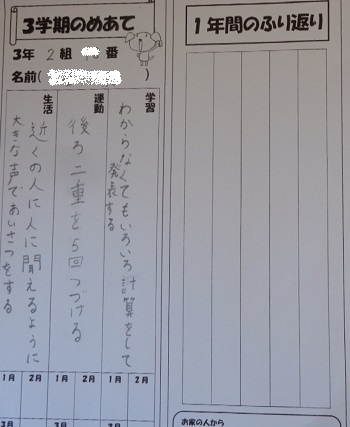 3学期のめあて
3年 2組 番
名前( )
学習
わからなくてもいろいろ計算をして
発表する
運動
後ろ二重を5回つづける
生活
近くの人に人に聞えるように
大きな声であいさつをする
1月 2月 1月 2月 1月 2月
3月 3月 3月
1年間のふり返り
お家の人から